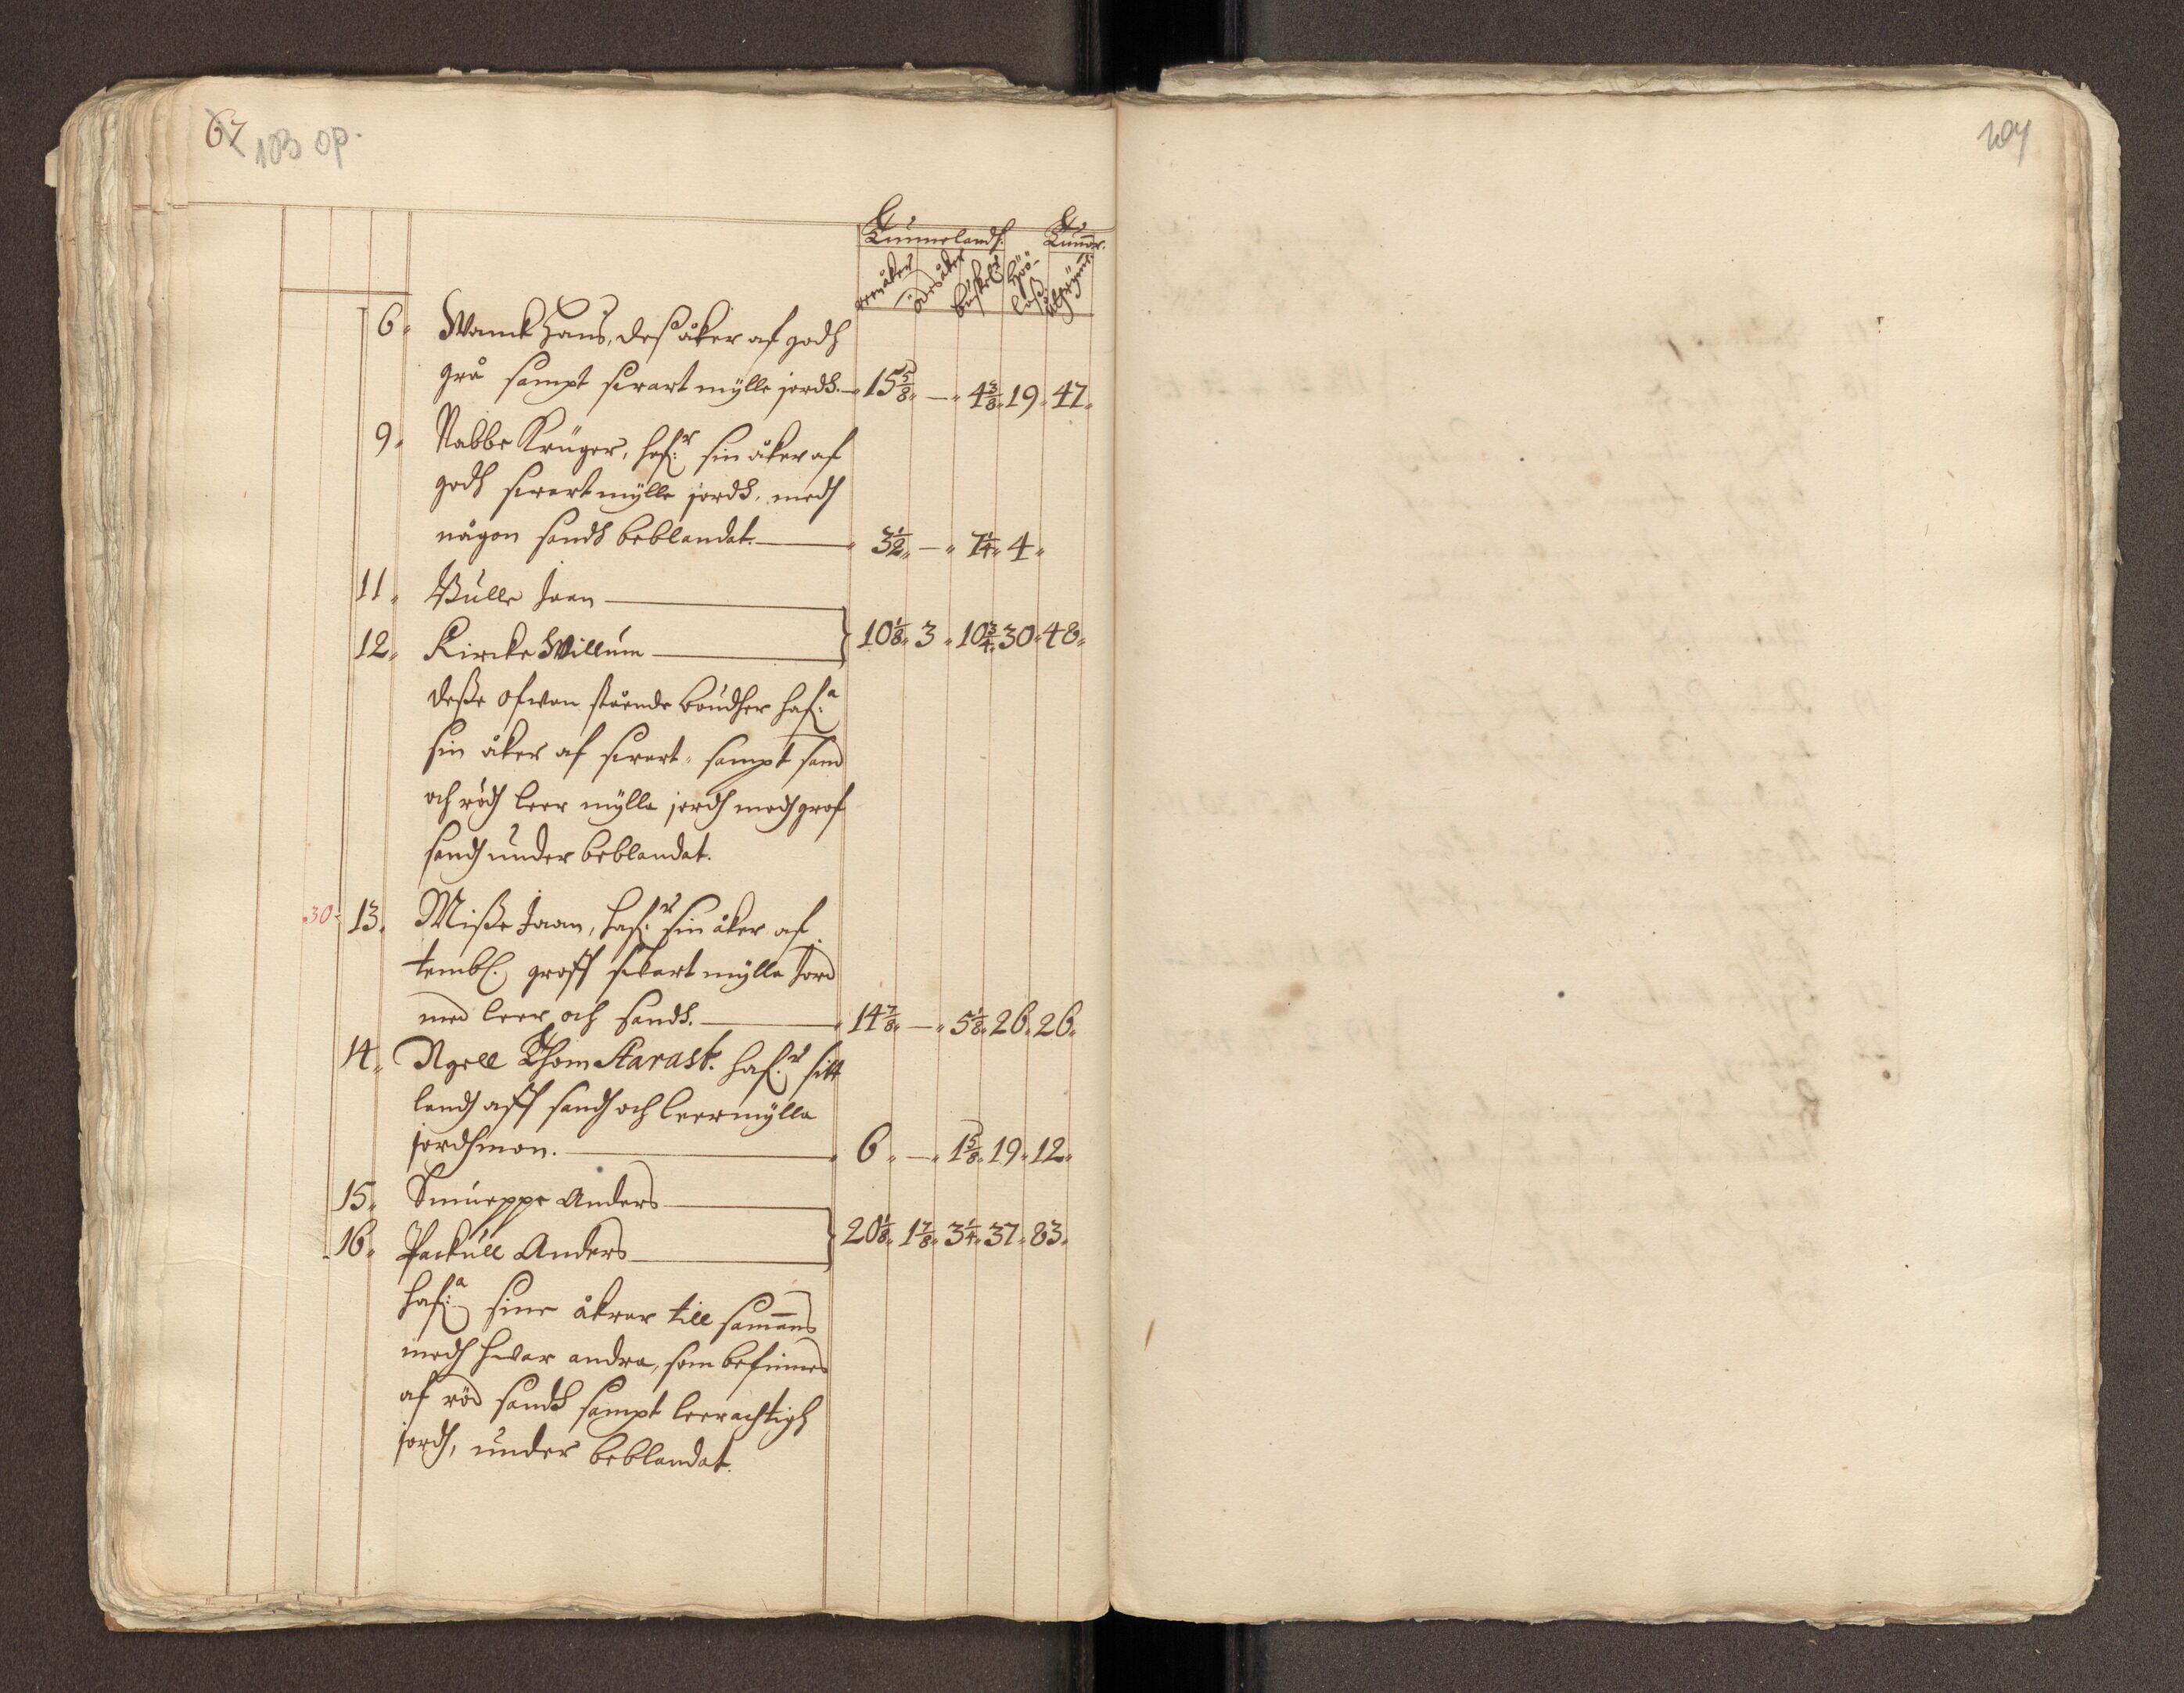 67 103 op.
104
Tunnelandh. Tunnor.
brukåker ödesåker buskelandh Höö- lass utsäde
6. Wanck Hans, dess åker af godh
grå sampt swart mylle jordh. 15 5/8 — 4 3/8 19 47
9. Nabbe Krüger, haf:r sin åker af
godh swart mylle jordh, medh
någon sandh beblandat. 3 1/2 — 7 1/4 4
11. Bulle Jaan
12. Kircke Willum 10 1/8 3 10 3/4 30 48
desse ofwan stående böndher haf:a
sin åker af swart, sampt sand
och rödh leer mylla jordh medh grof
sandh under beblandat.
30 13. Misse Jaan, haf:r sin åker af
temb. groff swart mylla Jord
med leer och sandh. 14 7/8 — 5 1/8 26 26
14. Ngell Thom Karask. haf:r sitt
landh aff sandh och leermylla
jordhmon. 6 — 1 5/8 19 12
15. Knueppe Anders
16. Packull Anders 20 1/8 1 7/8 3 1/4 37 83
haf:a sine åkrar till samans
medh hwar andra, som befinnes
af röd sandh sampt leerachtigh
jordh, under beblandat.